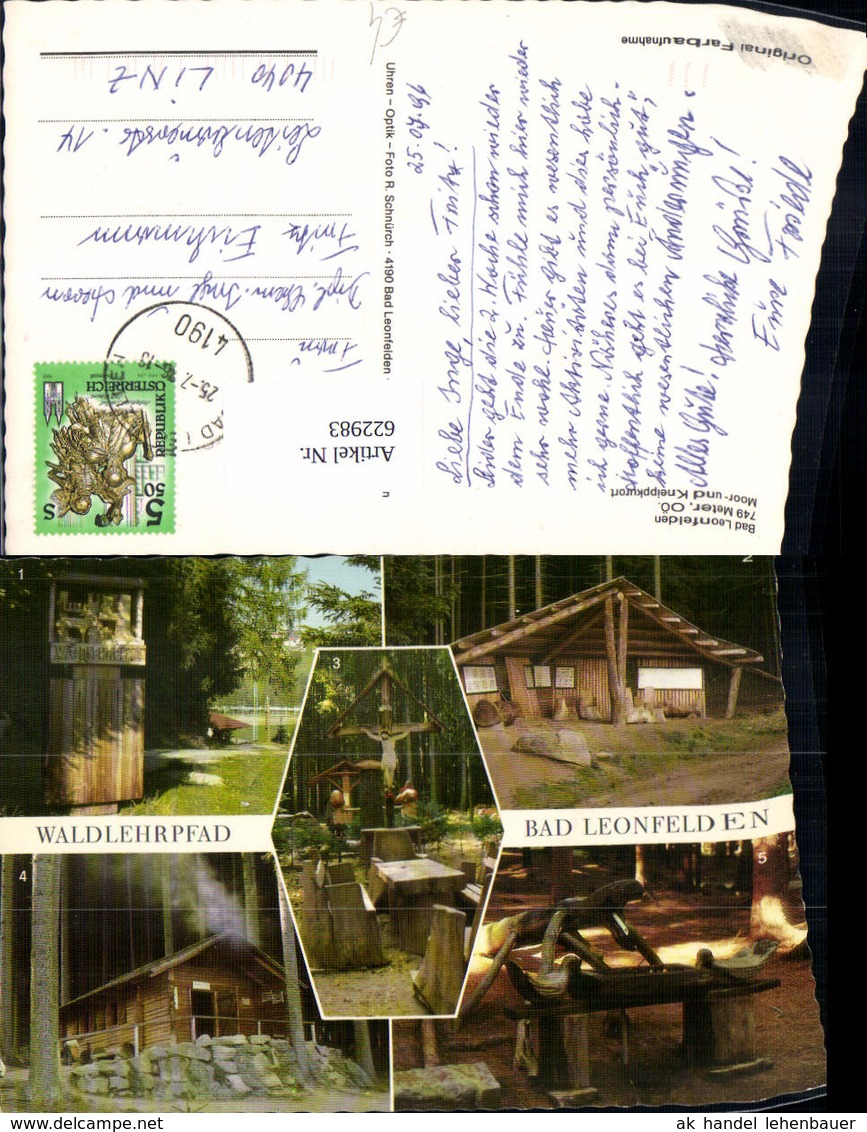 Original Farbaufnahme
25.07.96
Liebe Inge, lieber Fritz!
Leider geht die 2. Woche schon wieder
dem Ende zu. Fühle mich hier wieder
sehr wohl. Heuer gibt es wesentlich
mehr Aktivitäten und dies habe
ich gerne. Näheres dann persönlich.
Hoffentlich geht es bei Euch gut,
keine wesentlichen Änderungen.
Alles Gute! Herzliche Grüße!
Eure Friede
Bad Leonfelden
749 Meter, OÖ.
Moor- und Kneippkurort
Uhren – Optik – Foto R. Schnürch · 4190 Bad Leonfelden ·
n
Artikel Nr.
622983
REPUBLIK
ÖSTERREICH
5 50
S
4190
25.-7.
BAD
Frau
Inge und Herrn
Fritz
14
4040 LINZ
1
2
3
WALDLEHRPFAD
BAD LEONFELDEN
4
5
ak handel lehenbauer